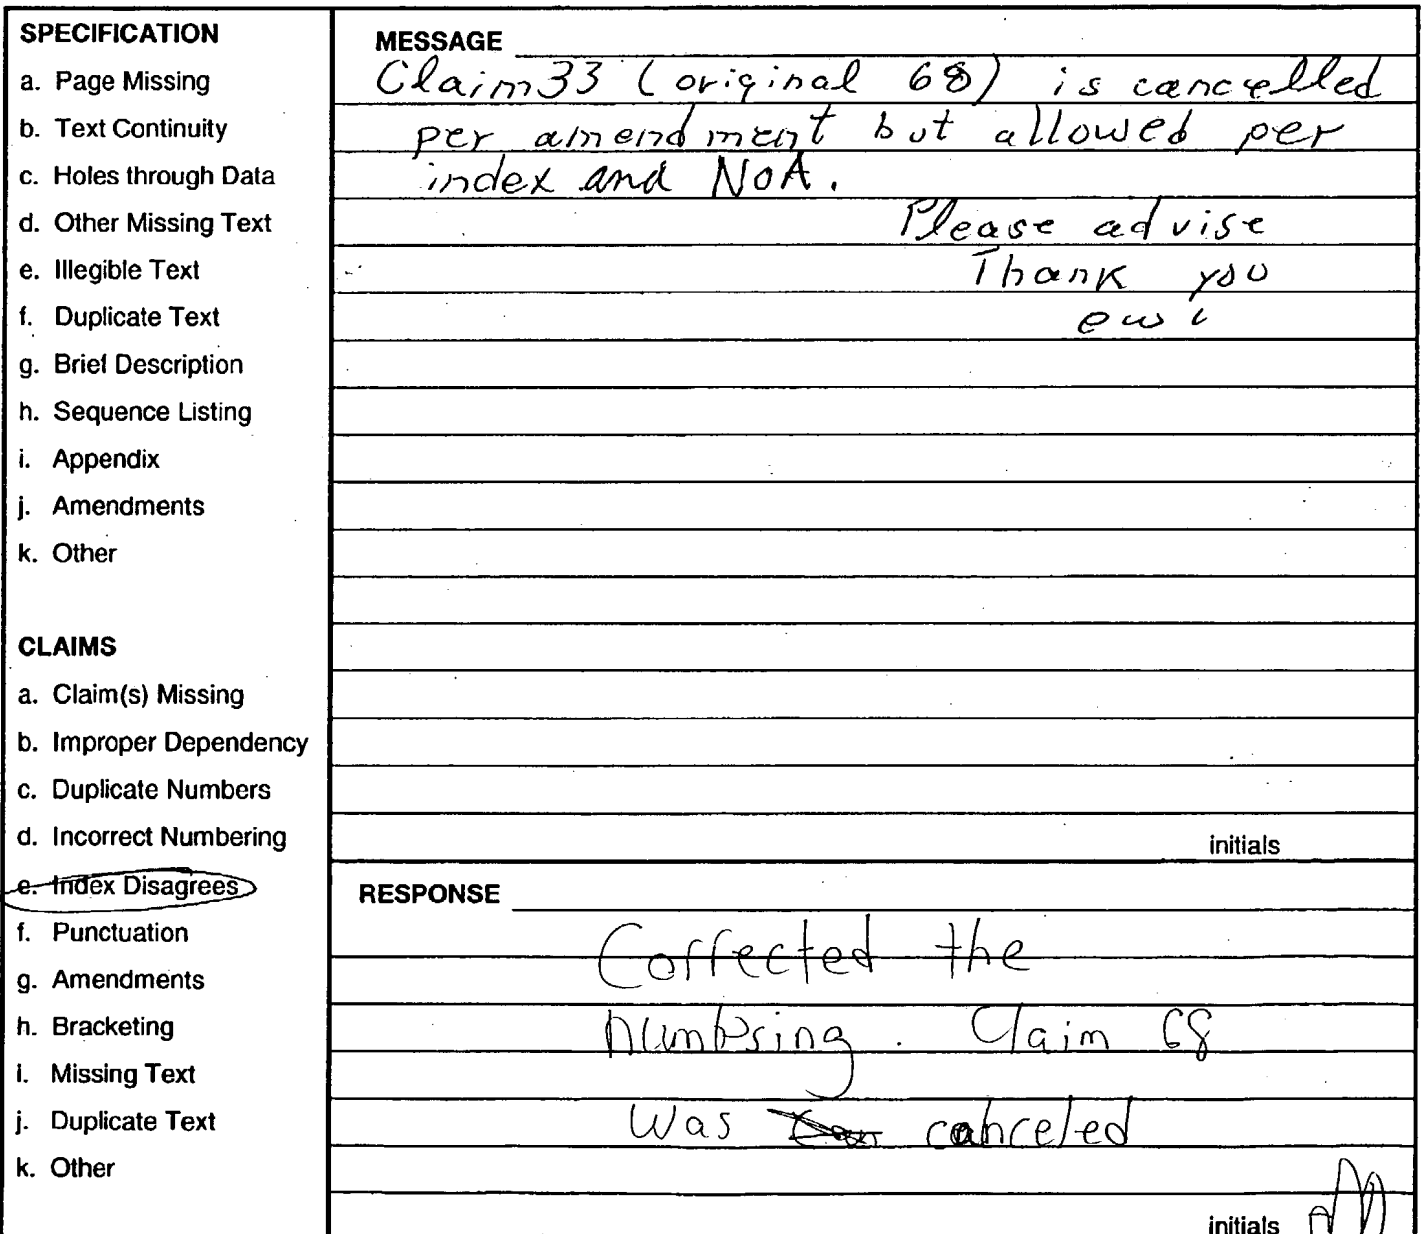 SPECIFICATION
a. Page Missing
b. Text Continuity
c. Holes through Data
d. Other Missing Text
e. Illegible Text
f. Duplicate Text
g. Brief Description
h. Sequence Listing
i. Appendix
j. Amendments
k. Other
CLAIMS
a. Claim(s) Missing
b. Improper Dependency
c. Duplicate Numbers
d. Incorrect Numbering
e. Index Disagrees
f. Punctuation
g. Amendments
h. Bracketing
i. Missing Text
j. Duplicate Text
k. Other
MESSAGE
Claim 33 (original 68) is cancelled
per amendment but allowed per
index and NOA.
Please advise
Thank you
initials
RESPONSE
Corrected the
Claim 68
was canceled
initials